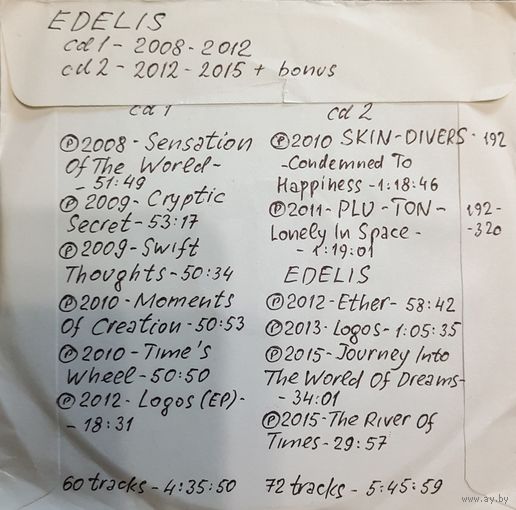 EDELIS
cd 1 - 2008 - 2012
cd 2 - 2012 - 2015 + bonus
cd 1
Ⓟ 2008 - Sensation
Of The World -
- 51:49
Ⓟ 2009 - Cryptic
Secret - 53:17
Ⓟ 2009 - Swift
Thoughts - 50:34
Ⓟ 2010 - Moments
Of Creation - 50:53
Ⓟ 2010 - Time's
Wheel - 50:50
Ⓟ 2012 - Logos (EP) -
- 18:31
60 tracks - 4:35:50
cd 2
Ⓟ 2010 SKIN - DIVERS - 192
- Condemned To
Happiness - 1:18:46
Ⓟ 2011 - PLU - TON - 192 -
Lonely In Space - - 320
- 1:19:01
EDELIS
Ⓟ 2012 - Ether - 58:42
Ⓟ 2013 - Logos - 1:05:35
Ⓟ 2015 - Journey Into
The World Of Dreams -
- 34:01
Ⓟ 2015 - The River Of
Times - 29:57
72 tracks - 5:45:59
www.ay.by